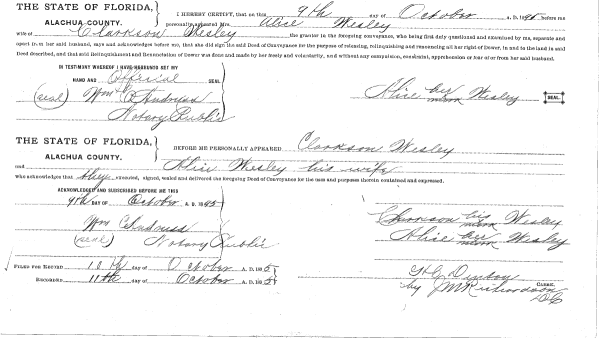 THE STATE OF FLORIDA, ALACHUA COUNTY.
I HEREBY CERTIFY, that on this 9th day of October A. D. 18 before me
personally appeared Mrs Alice Wesley
wife of Clarkson Wesley the grantor in the foregoing conveyance, who being first duly questioned and examined by me, separate and
apart from her said husband, says and acknowledges before me, that she did sign the said Deed of Conveyance for the purpose of releasing, relinquishing and renouncing all her right of Dower, in and to the land in said
Deed described, and that said Relinquishment and Renunciation of Dower was done and made by her freely and voluntarily, and without any compulsion, constraint, apprehension or fear of or from her said husband.
IN TESTIMONY WHEREOF I HAVE HEREUNTO SET MY
HAND AND Official SEAL
(seal) Wm
Notary Public
Alice her mark Wesley SEAL
THE STATE OF FLORIDA, ALACHUA COUNTY.
BEFORE ME PERSONALLY APPEARED Clarkson Wesley
and Alice Wesley his wife
who acknowledge that they executed, signed, sealed and delivered the foregoing Deed of Conveyance for the uses and purposes therein contained and expressed.
ACKNOWLEDGED AND SUBSCRIBED BEFORE ME THIS
9th DAY OF October A. D. 1895
Wm
(seal) Notary Public
Clarkson his mark Wesley
Alice her mark Wesley
FILED FOR RECORD 10th day of October A. D. 1895
RECORDED 11th day of October A. D. 1895
CLERK.
by J M Richardson
D C